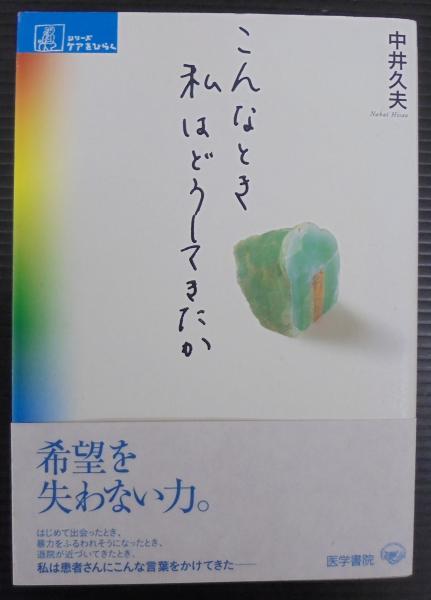 シリーズ
ケアをひらく
中井久夫
Nakai Hisao
こんなとき
私はどうしてきたか
希望を
失わない力。
はじめて出会ったとき、
暴力をふるわれそうになったとき、
退院が近づいてきたとき、
私は患者さんにこんな言葉をかけてきた——
医学書院